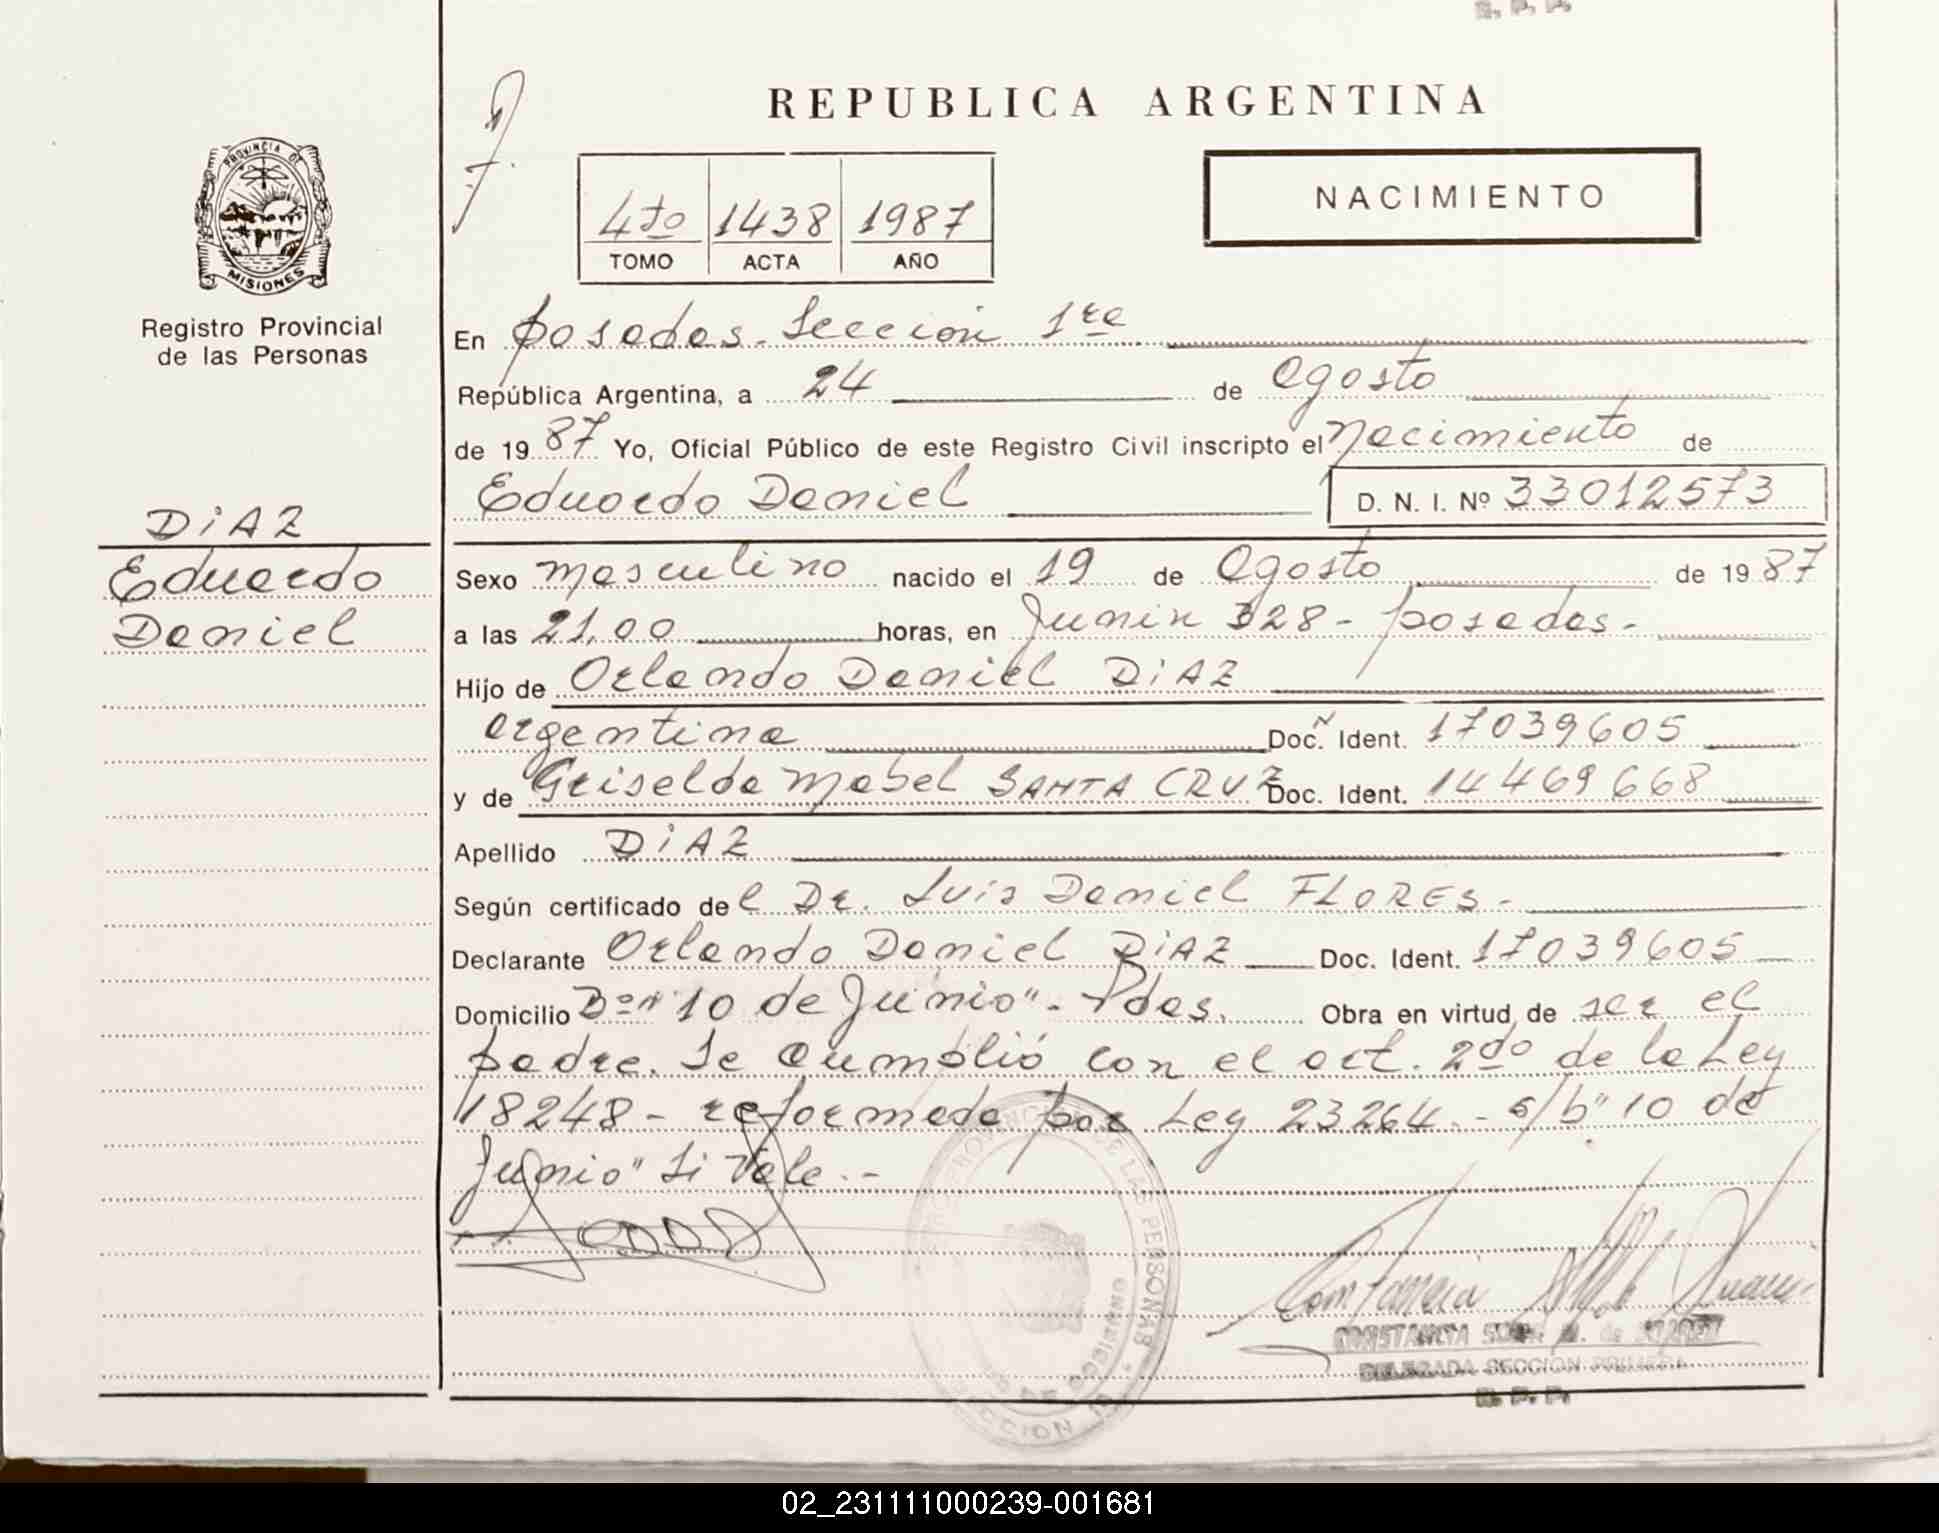 R. P. P.
REPUBLICA ARGENTINA
PROVINCIA DE
MISIONES
Registro Provincial
de las Personas
4to 1438 1987
TOMO ACTA AÑO
NACIMIENTO
En Posadas - Sección 1ra
República Argentina, a 24 de Agosto
de 1987 Yo, Oficial Público de este Registro Civil inscripto el Nacimiento de
Eduardo Daniel D. N. I. Nº 33012573
DiAZ
Eduardo
Daniel
Sexo masculino nacido el 19 de Agosto de 1987
a las 21,00 horas, en Junin 328 - Posadas -
Hijo de Orlando Daniel DiAZ
argentina Doc. Ident. 17039605
y de Griselda Mabel SANTA CRUZ Doc. Ident. 14469668
Apellido DiAZ
Según certificado del Dr. Luis Daniel FLORES -
Declarante Orlando Daniel DiAZ Doc. Ident. 17039605
Domicilio Bº "10 de Junio" - Pdas. Obra en virtud de ser el
padre. Se cumplió con el art. 2do de la Ley
18248 - reformada por Ley 23264 - s/b "10 de
Junio" Si Vale. -
CONSTANCIA M. de SUAREZ
DELEGADA SECCION PRIMERA
R. P. P.
02_231111000239-001681